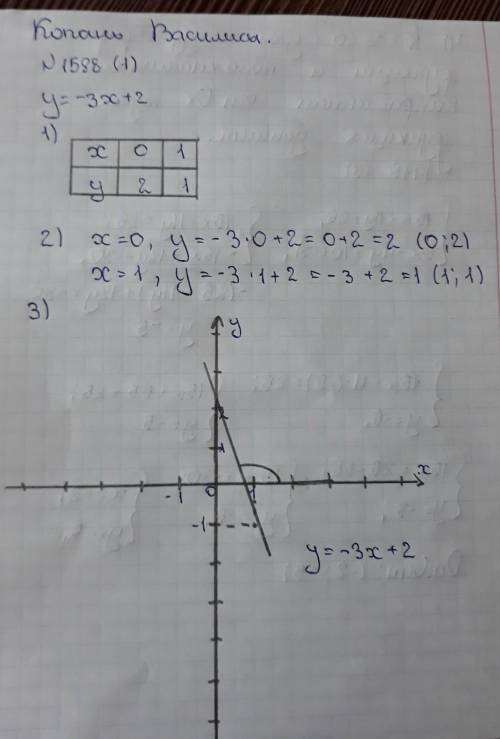 Копань Василисы.
№1588 (1)
y=-3x+2
1)
x 0 1
y 2 1
2) x=0, y=-3·0+2=0+2=2 (0;2)
x=1, y=-3·1+2=-3+2=1 (1;1)
3)
y
2
1
x
-1 0 1
-1
y=-3x+2